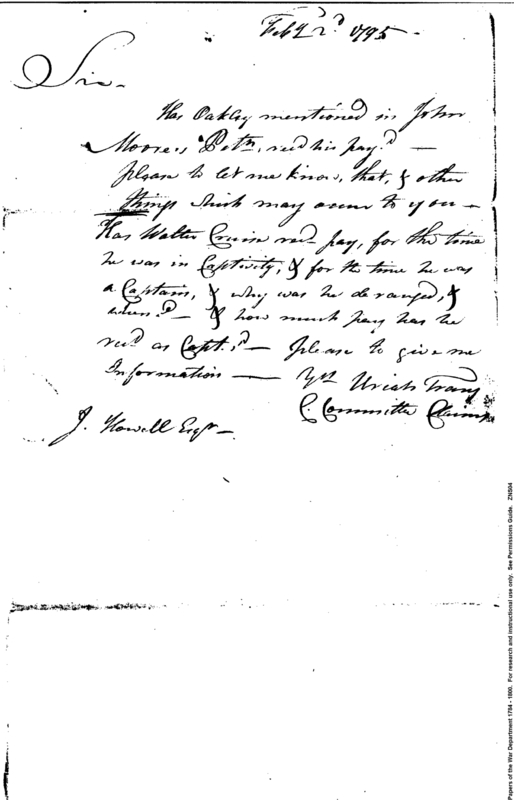 Feby 2d 1795 -
Sir -
Has Oakley mentioned in John
Moore's Petn, recd his pay? —
please to let me know, that, & other
things which may occur to you —
Has Walter Cruise recd pay, for the time
he was in Captivity, & for the time he was
a Captain, & why was he deranged, &
when? — & how much pay has he
recd as Capt.? — please to give me
Information — Yrs Uriah Tracy
C. Committee Claims
J. Howell Esqr —
Papers of the War Department 1784 - 1800. For research and instructional use only. See Permissions Guide. ZNS04